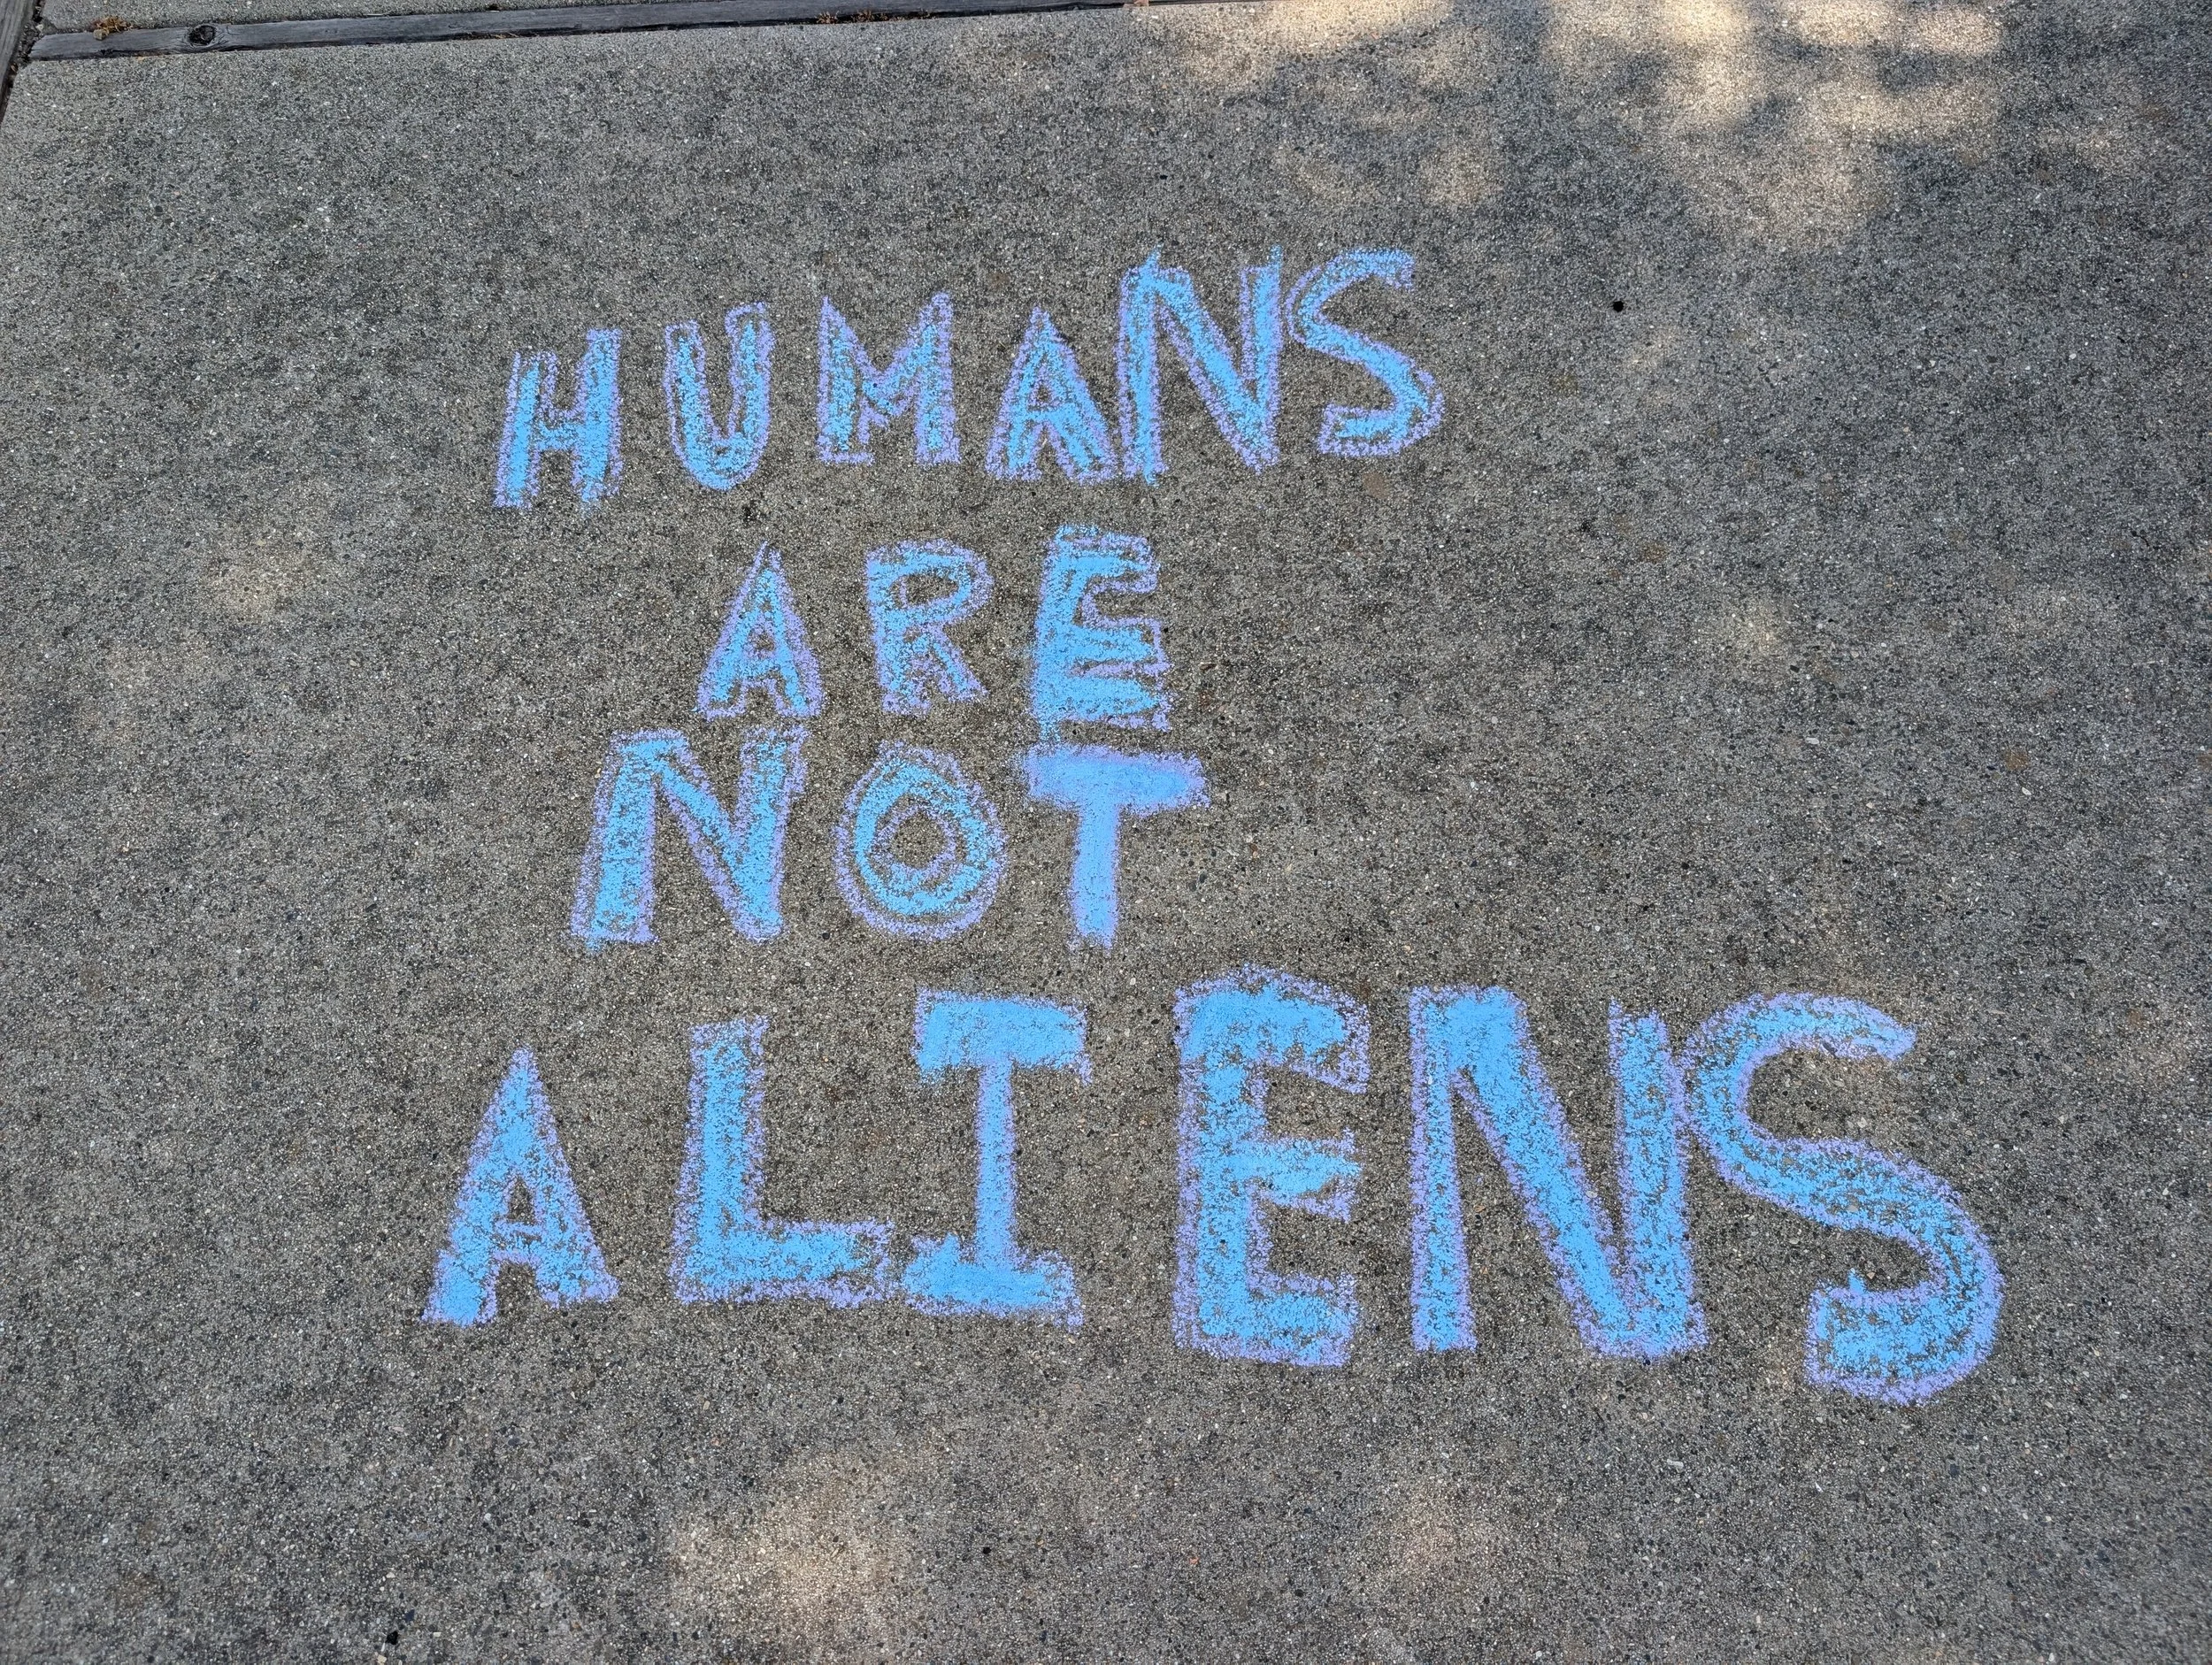 HUMANS
ARE
NOT
ALIENS